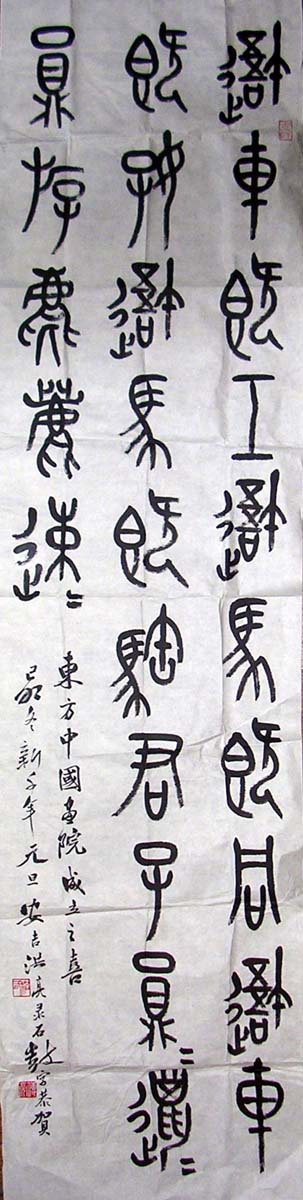 吾車既工吾馬既同吾車
既好吾馬既騊君子員=邋=
員斿麀鹿速=
東方中國畫院成立之喜
己卯冬新千年元旦安吉洪亮录石鼓字恭賀